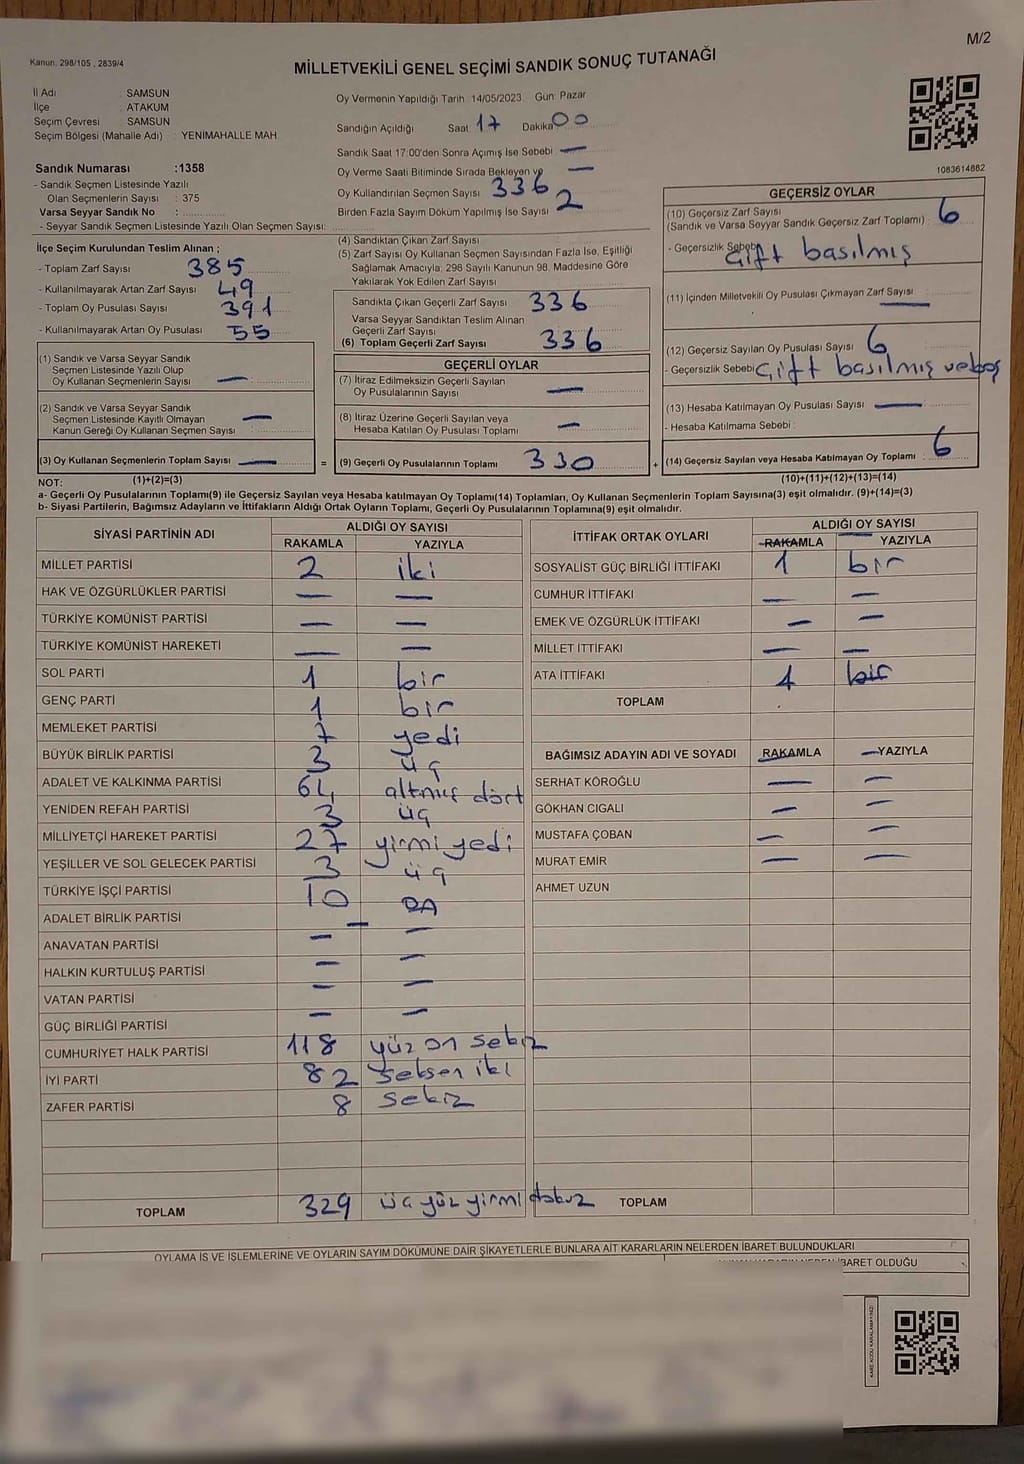 M/2
Kanun: 298/105 , 2839/4
MİLLETVEKİLİ GENEL SEÇİMİ SANDIK SONUÇ TUTANAĞI
İl Adı : SAMSUN
İlçe : ATAKUM
Seçim Çevresi : SAMSUN
Seçim Bölgesi (Mahalle Adı) : YENİMAHALLE MAH.
Sandık Numarası :1358
- Sandık Seçmen Listesinde Yazılı
Olan Seçmenlerin Sayısı : 375
Varsa Seyyar Sandık No :
- Seyyar Sandık Seçmen Listesinde Yazılı Olan Seçmen Sayısı:
Oy Vermenin Yapıldığı Tarih 14/05/2023 Gün: Pazar
Sandığın Açıldığı Saat 17 Dakika 00
Sandık Saat 17:00'den Sonra Açımış İse Sebebi —
Oy Verme Saati Bitiminde Sırada Bekleyen ve —
Oy Kullandırılan Seçmen Sayısı 336
Birden Fazla Sayım Döküm Yapılmış İse Sayısı 2
1083614882
İlçe Seçim Kurulundan Teslim Alınan ;
- Toplam Zarf Sayısı 385
- Kullanılmayarak Artan Zarf Sayısı 49
- Toplam Oy Pusulası Sayısı 391
- Kullanılmayarak Artan Oy Pusulası 55
(1) Sandık ve Varsa Seyyar Sandık
Seçmen Listesinde Yazılı Olup
Oy Kullanan Seçmenlerin Sayısı —
(2) Sandık ve Varsa Seyyar Sandık
Seçmen Listesinde Kayıtlı Olmayan
Kanun Gereği Oy Kullanan Seçmen Sayısı —
(3) Oy Kullanan Seçmenlerin Toplam Sayısı —
(4) Sandıktan Çıkan Zarf Sayısı
(5) Zarf Sayısı Oy Kullanan Seçmen Sayısından Fazla İse, Eşitliği
Sağlamak Amacıyla; 298 Sayılı Kanunun 98. Maddesine Göre
Yakılarak Yok Edilen Zarf Sayısı
Sandıkta Çıkan Geçerli Zarf Sayısı 336
Varsa Seyyar Sandıktan Teslim Alınan
Geçerli Zarf Sayısı
(6) Toplam Geçerli Zarf Sayısı 336
GEÇERLİ OYLAR
(7) İtiraz Edilmeksizin Geçerli Sayılan
Oy Pusulalarının Sayısı —
(8) İtiraz Üzerine Geçerli Sayılan veya
Hesaba Katılan Oy Pusulası Toplamı —
= (9) Geçerli Oy Pusulalarının Toplamı 330
GEÇERSİZ OYLAR
(10) Geçersiz Zarf Sayısı 6
(Sandık ve Varsa Seyyar Sandık Geçersiz Zarf Toplamı)
- Geçersizlik Sebebi Çift basılmış
(11) İçinden Milletvekili Oy Pusulası Çıkmayan Zarf Sayısı —
(12) Geçersiz Sayılan Oy Pusulası Sayısı 6
- Geçersizlik Sebebi Çift basılmış ve boş
(13) Hesaba Katılmayan Oy Pusulası Sayısı —
- Hesaba Katılmama Sebebi :
+ (14) Geçersiz Sayılan veya Hesaba Katılmayan Oy Toplamı 6
NOT: (1)+(2)=(3) (10)+(11)+(12)+(13)=(14)
a- Geçerli Oy Pusulalarının Toplamı(9) ile Geçersiz Sayılan veya Hesaba katılmayan Oy Toplamı(14) Toplamları, Oy Kullanan Seçmenlerin Toplam Sayısına(3) eşit olmalıdır. (9)+(14)=(3)
b- Siyasi Partilerin, Bağımsız Adayların ve İttifakların Aldığı Ortak Oyların Toplamı, Geçerli Oy Pusulalarının Toplamına(9) eşit olmalıdır.
SİYASİ PARTİNİN ADI ALDIĞI OY SAYISI
RAKAMLA YAZIYLA
MİLLET PARTİSİ 2 iki
HAK VE ÖZGÜRLÜKLER PARTİSİ — —
TÜRKİYE KOMÜNİST PARTİSİ — —
TÜRKİYE KOMÜNİST HAREKETİ — —
SOL PARTİ 1 bir
GENÇ PARTİ 1 bir
MEMLEKET PARTİSİ 7 yedi
BÜYÜK BİRLİK PARTİSİ 3 üç
ADALET VE KALKINMA PARTİSİ 64 altmış dört
YENİDEN REFAH PARTİSİ 3 üç
MİLLİYETÇİ HAREKET PARTİSİ 27 yirmi yedi
YEŞİLLER VE SOL GELECEK PARTİSİ 3 üç
TÜRKİYE İŞÇİ PARTİSİ 10 on
ADALET BİRLİK PARTİSİ —
ANAVATAN PARTİSİ — —
HALKIN KURTULUŞ PARTİSİ — —
VATAN PARTİSİ — —
GÜÇ BİRLİĞİ PARTİSİ — —
CUMHURİYET HALK PARTİSİ 118 yüz on sekiz
İYİ PARTİ 82 seksen iki
ZAFER PARTİSİ 8 sekiz
TOPLAM 329 üç yüz yirmi dokuz
İTTİFAK ORTAK OYLARI ALDIĞI OY SAYISI
RAKAMLA YAZIYLA
SOSYALİST GÜÇ BİRLİĞİ İTTİFAKI 1 bir
CUMHUR İTTİFAKI — —
EMEK VE ÖZGÜRLÜK İTTİFAKI — —
MİLLET İTTİFAKI — —
ATA İTTİFAKI 1 bir
TOPLAM
BAĞIMSIZ ADAYIN ADI VE SOYADI RAKAMLA YAZIYLA
SERHAT KÖROĞLU — —
GÖKHAN CIGALI — —
MUSTAFA ÇOBAN — —
MURAT EMİR — —
AHMET UZUN
TOPLAM
OYLAMA İŞ VE İŞLEMLERİNE VE OYLARIN SAYIM DÖKÜMÜNE DAİR ŞİKAYETLERLE BUNLARA AİT KARARLARIN NELERDEN İBARET BULUNDUKLARI
İBARET OLDUĞU
KARE KODU KARALAMAYINIZ!